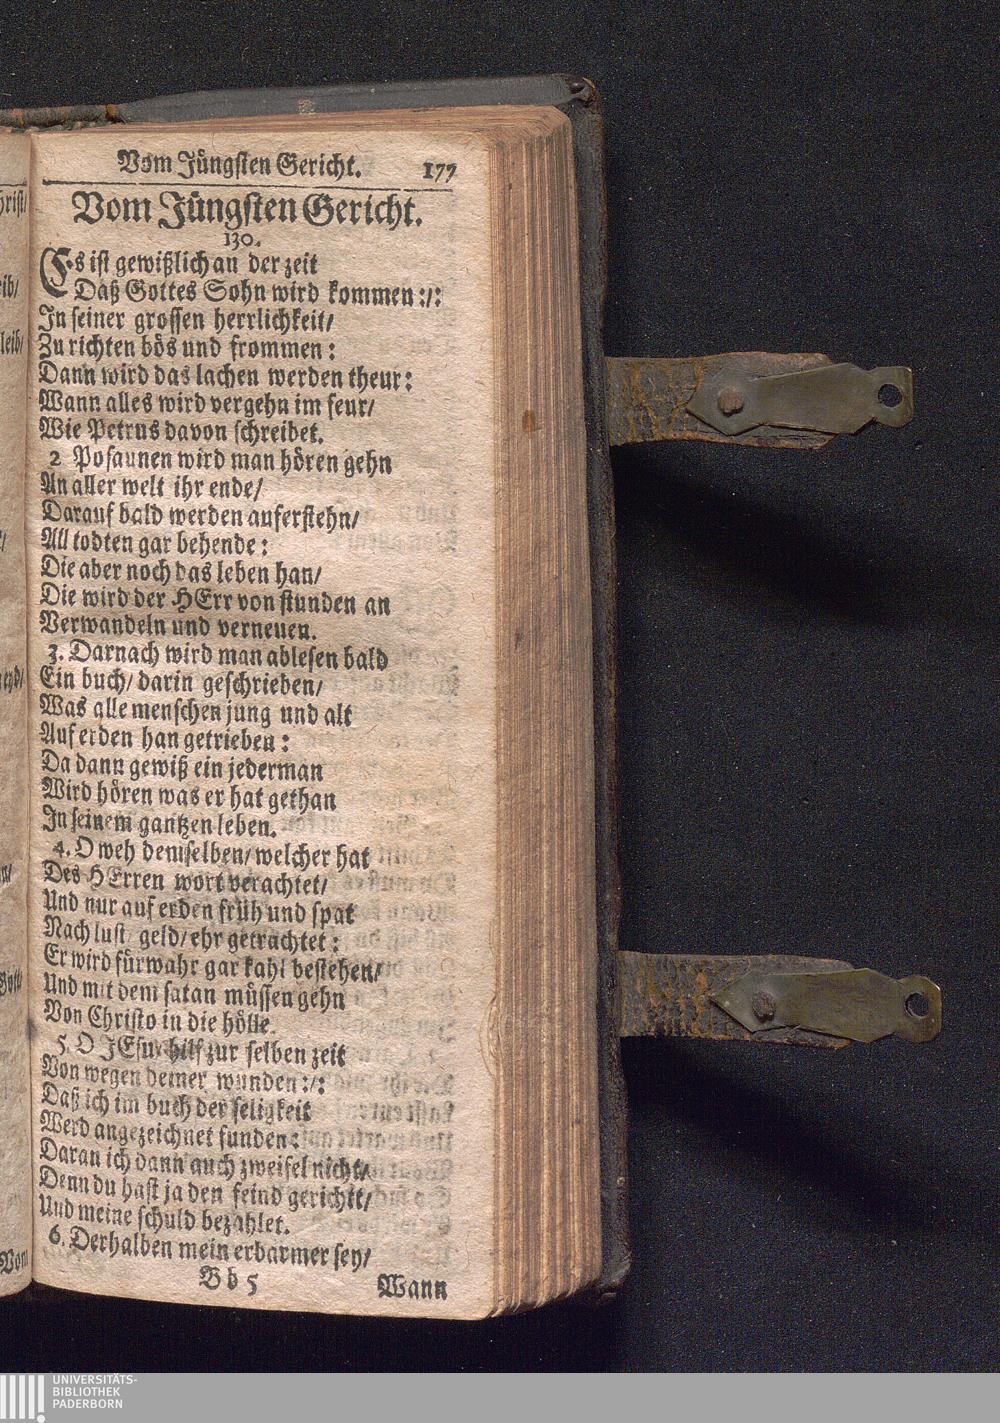 Vom Jüngsten Gericht. 177
Vom Jüngsten Gericht.
130.
Es ist gewißlich an der zeit
Daß Gottes Sohn wird kommen:/:
In seiner grossen herrlichkeit/
Zu richten bös und frommen:
Dann wird das lachen werden theur:
Wann alles wird vergehn im feur/
Wie Petrus davon schreibet.
2 Posaunen wird man hören gehn
An aller welt ihr ende/
Darauf bald werden auferstehn/
All todten gar behende:
Die aber noch das leben han/
Die wird der HErr von stunden an
Verwandeln und verneuen.
3. Darnach wird man ablesen bald
Ein buch/ darin geschrieben/
Was alle menschen jung und alt
Auf erden han getrieben:
Da dann gewiß ein jederman
Wird hören was er hat gethan
In seinem gantzen leben.
4. O weh demselben/ welcher hat
Des HErren wort verachtet/
Und nur auf erden früh und spat
Nach lust/ geld/ ehr getrachtet:
Er wird fürwahr gar kahl bestehen/
Und mit dem satan müssen gehn
Von Christo in die hölle.
5. O JEsu hilf zur selben zeit
Von wegen deiner wunden:/:
Daß ich im buch der seligkeit
Werd angezeichnet funden:
Daran ich dann auch zweifel nicht/
Denn du hast ja den feind gericht/
Und meine schuld bezahlet.
6. Derhalben mein erbarmer sey/
Bb 5 Wann
UNIVERSITÄTS-
BIBLIOTHEK
PADERBORN